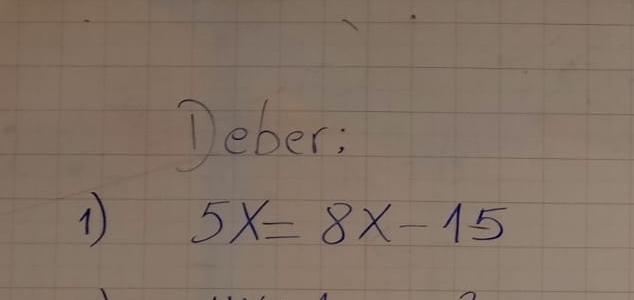 Deber:
1) 5X = 8X - 15